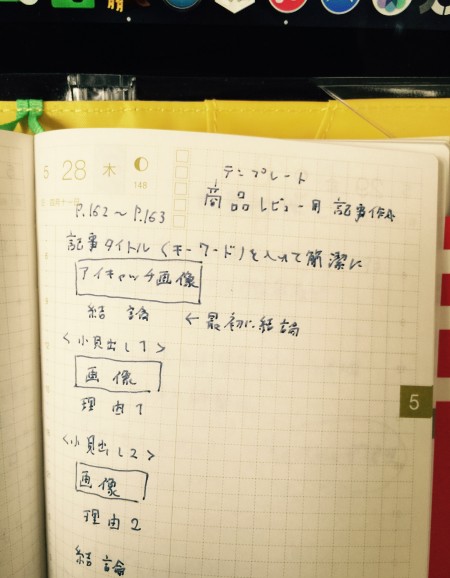 5 28 木
148
テンプレート
商品レビュー用 記事作成
P.162〜P.163
記事タイトル(キーワード)を入れて簡潔に
アイキャッチ画像
結論 ← 最初に結論
<小見出し1>
画像
理由1
5
<小見出し2>
画像
理由2
結論